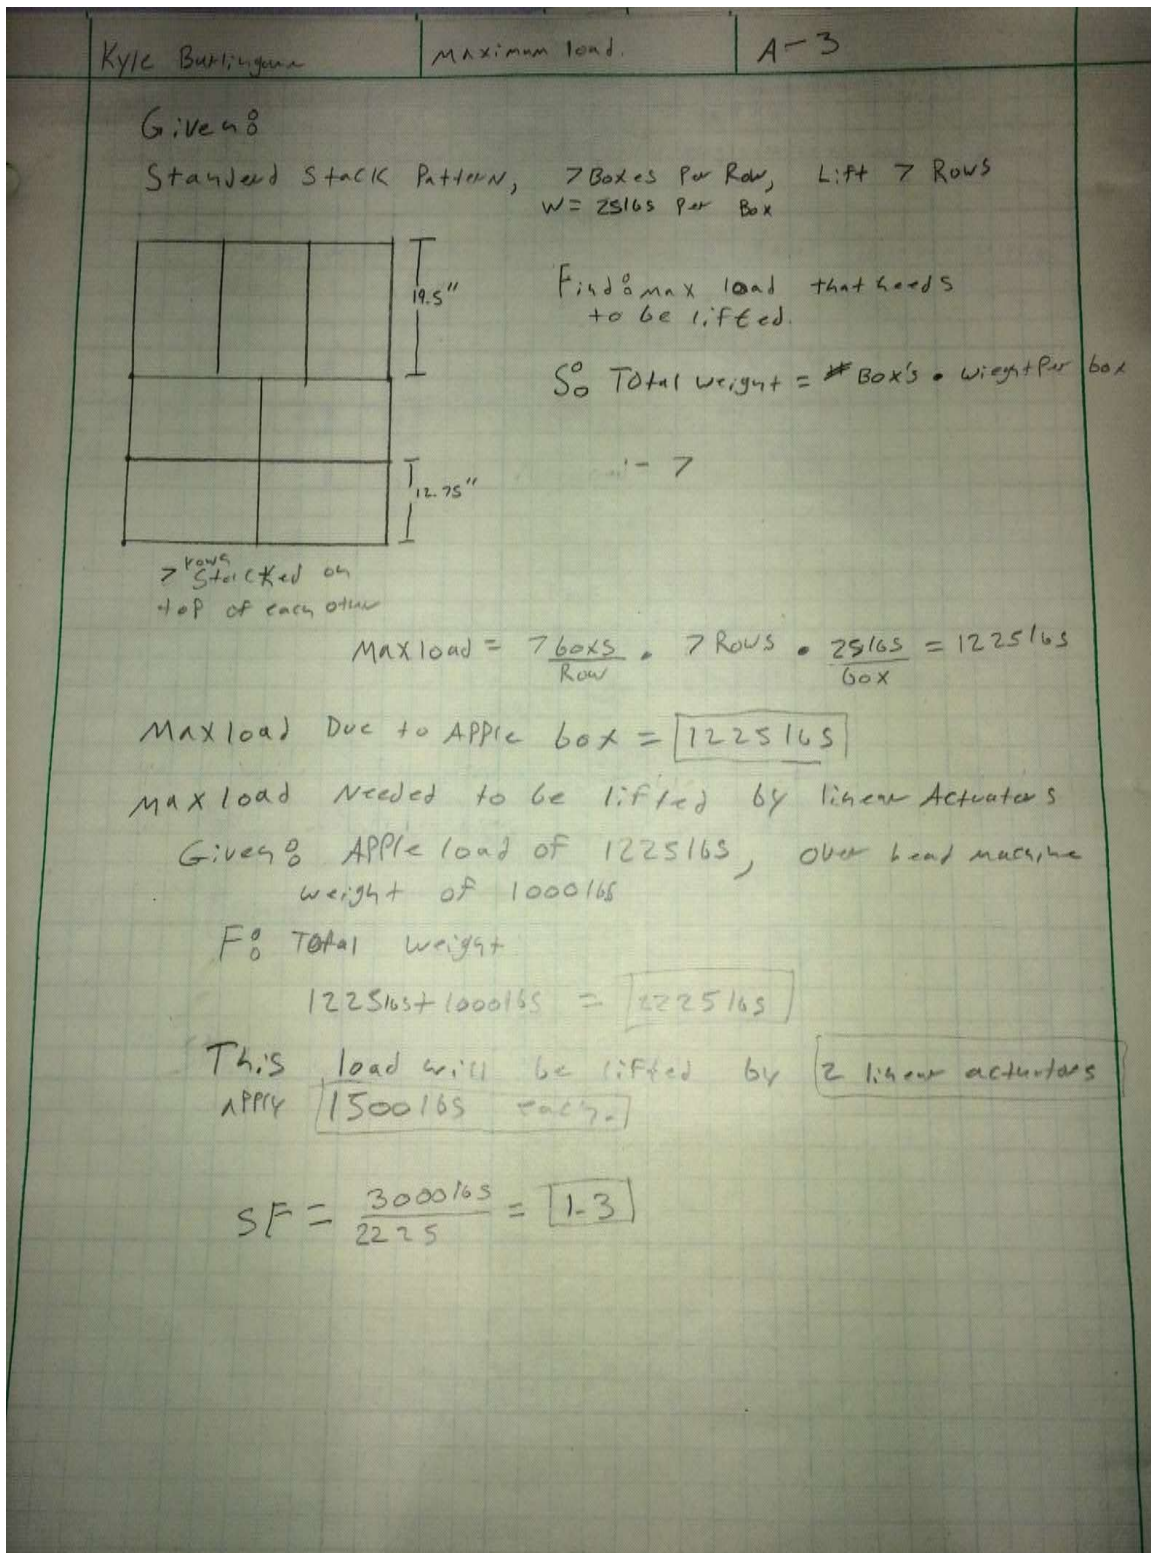 Kyle Burlingame
Maximum load.
A-3
Given:
Standerd Stack Pattern, 7 Boxes Per Row, Lift 7 Rows
W= 25lbs Per Box
19.5"
Find: max load that needs
to be lifted.
S: Total weight = # Box's • wieght Per box
- 7
12.75"
7 rows stacked on
top of each other
Max load = 7 boxs/Row • 7 Rows • 25lbs/box = 1225lbs
Max load Due to Apple box = 1225lbs
Max load Needed to be lifted by linear Actuators
Given: Apple load of 1225lbs, over head machine
weight of 1000lbs
F: Total weight
1225lbs+1000lbs = 2225lbs
This load will be lifted by 2 linear actuators
Apply 1500lbs each.
SF = 3000lbs/2225 = 1.3